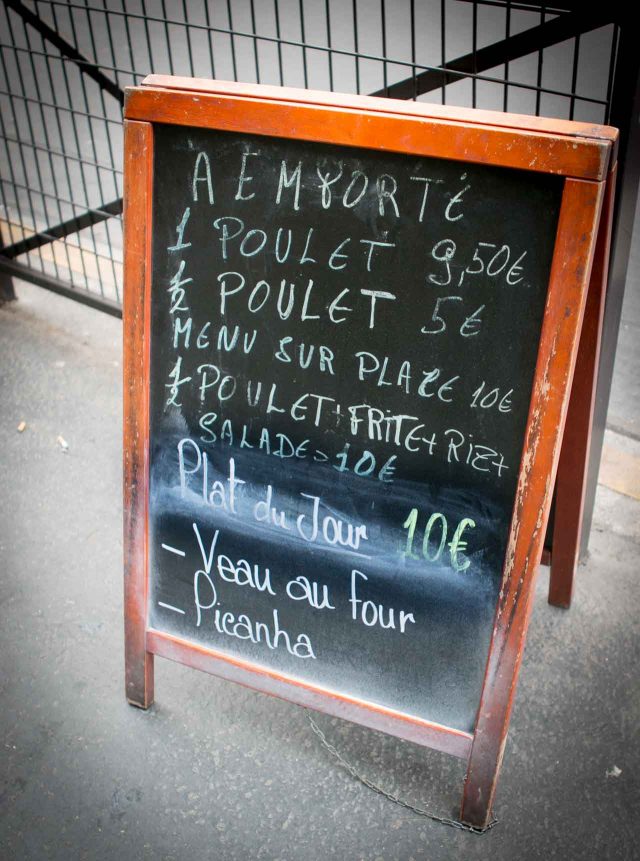 A EMPORTÉ
1 POULET 9,50€
1/2 POULET 5€
MENU SUR PLACE 10€
1/2 POULET+FRITE+RIZ+
SALADE=10€
Plat du Jour 10€
- Veau au four
- Picanha